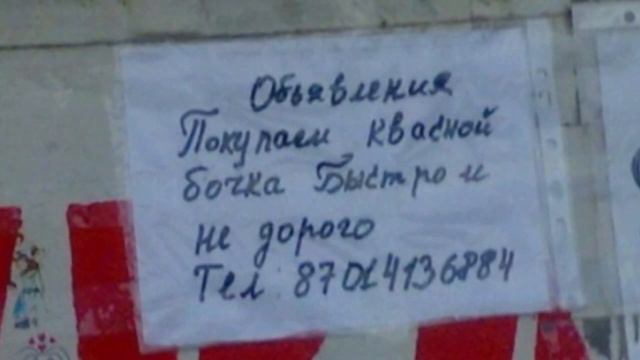 Обьявления
Покупаем квасной
бочка Быстро и
не дорого
Тел: 87014136884